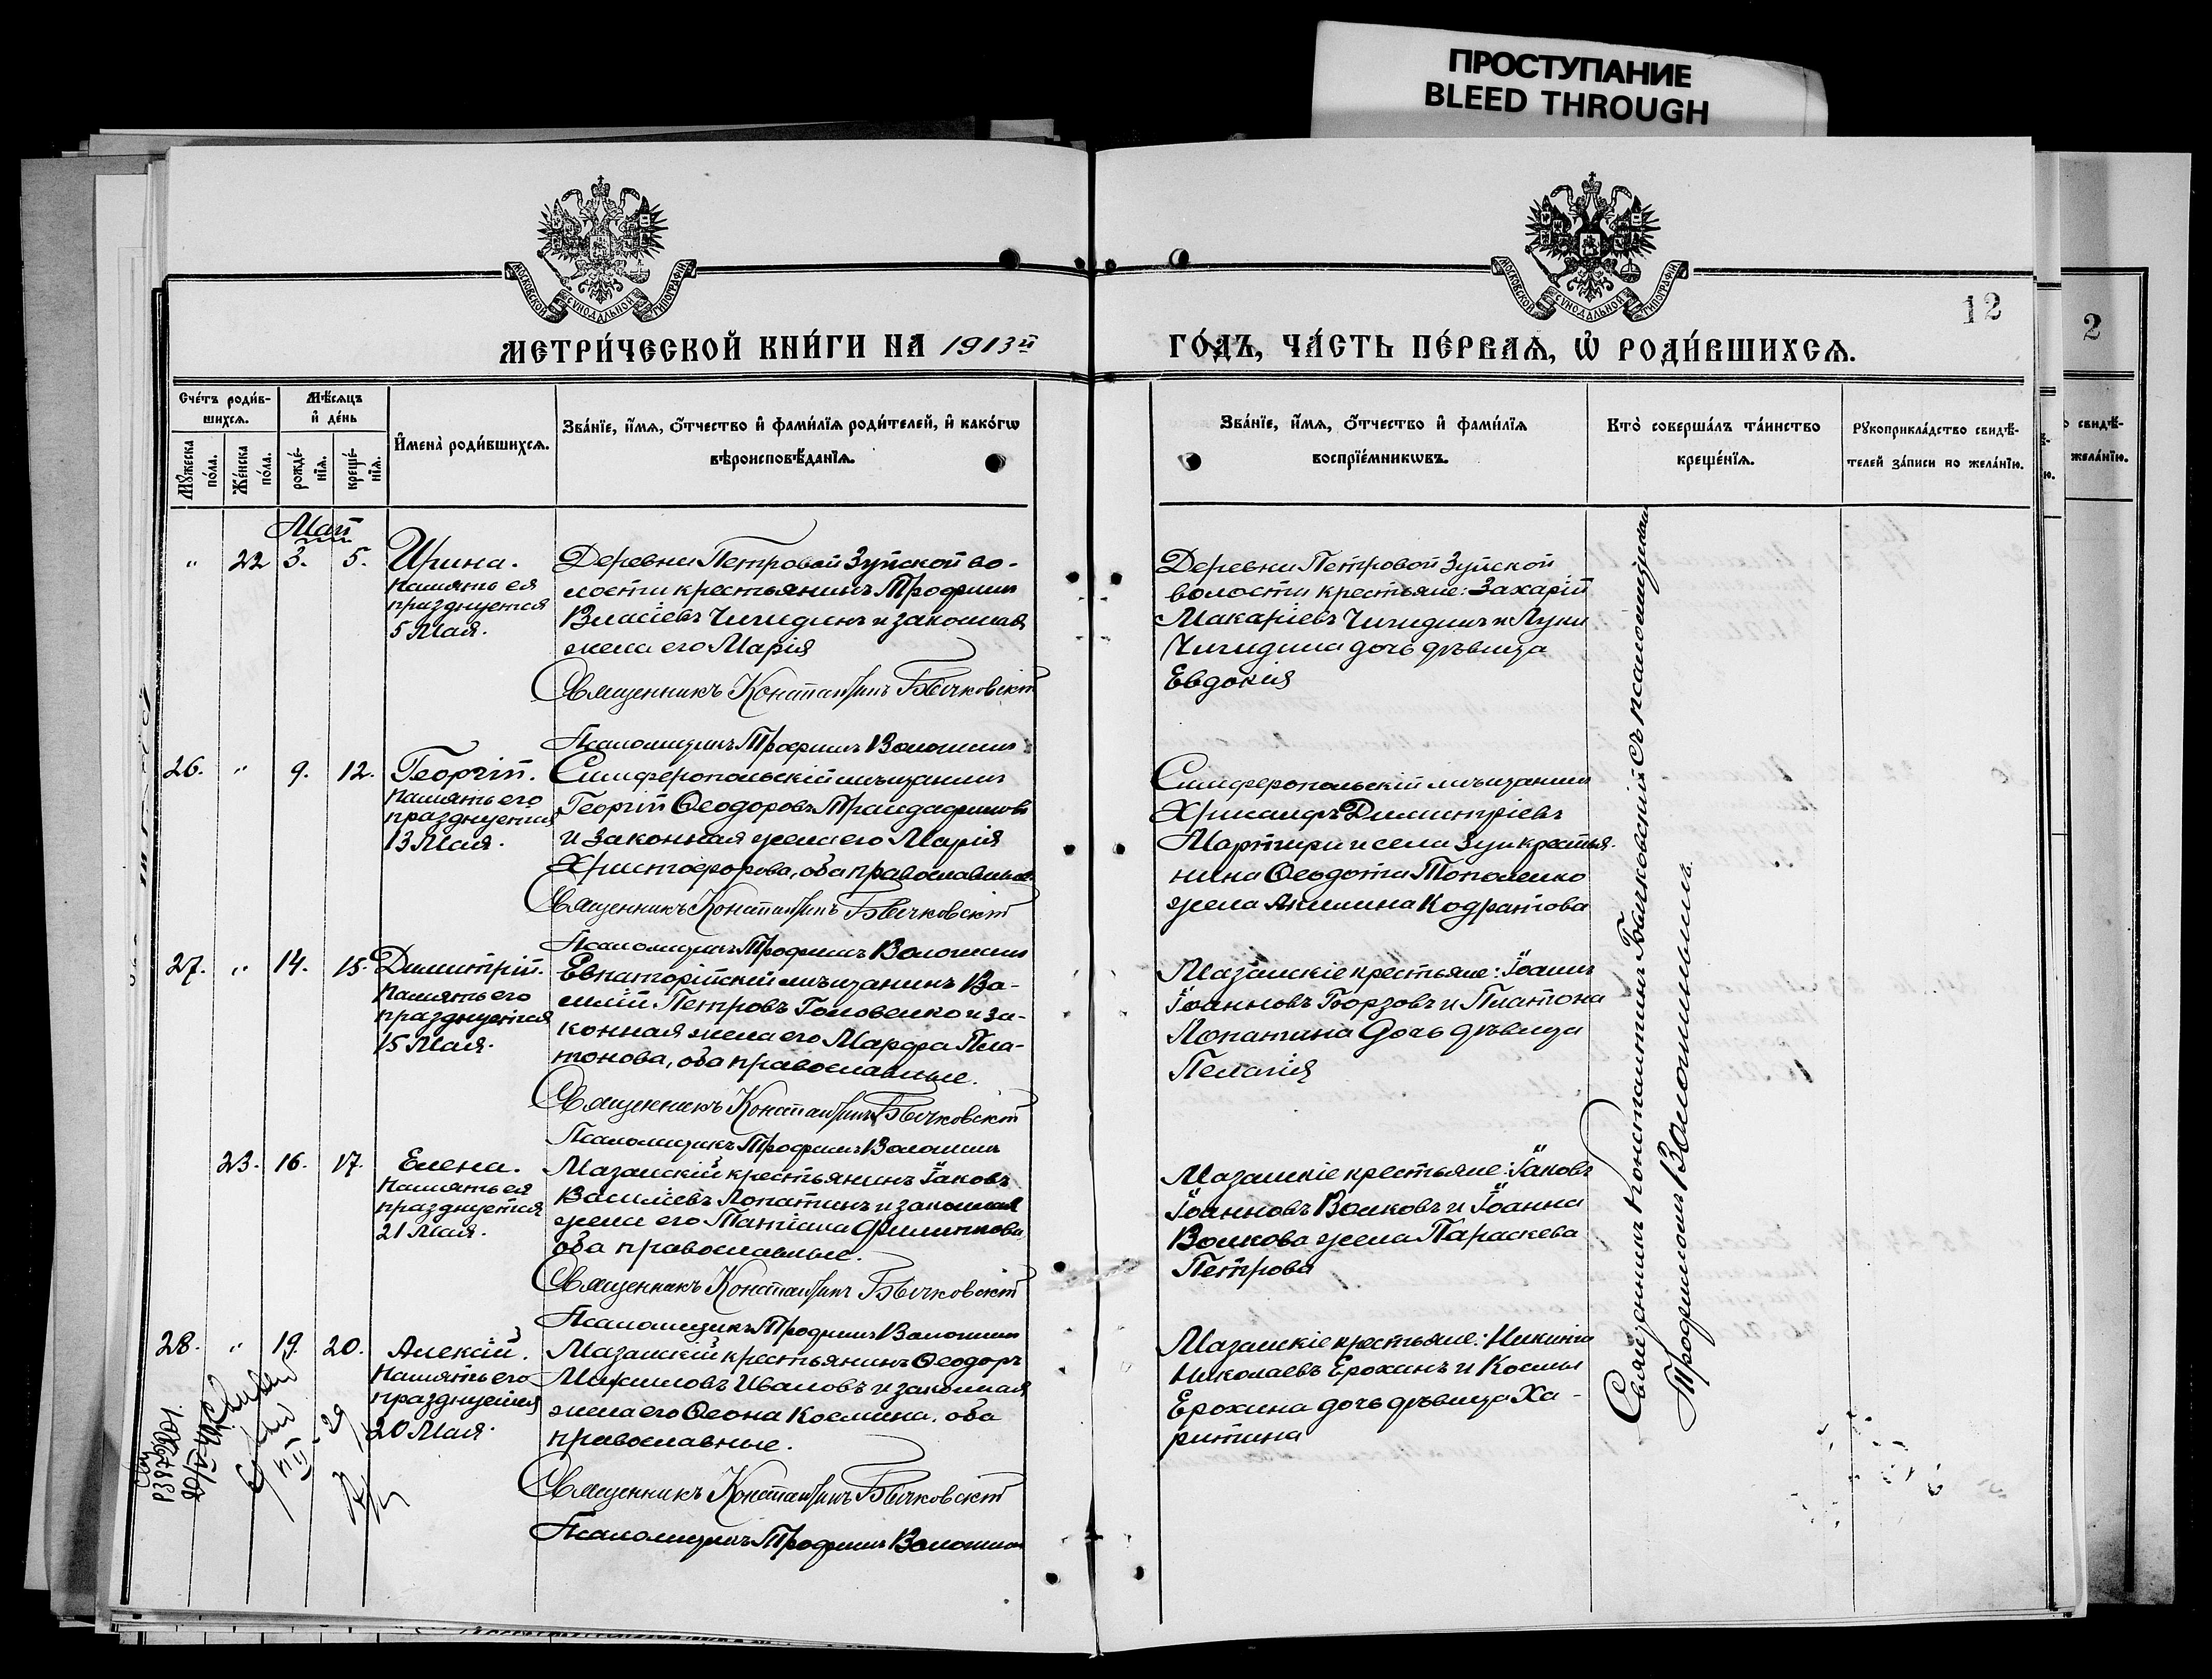 ПРОСТУПАНИЕ
BLEED THROUGH
МОСКОВСКОЙ СѴНОДАЛЬНОЙ ТИПОГРАФІИ
МОСКОВСКОЙ СѴНОДАЛЬНОЙ ТИПОГРАФІИ
12
2
МЕТРИ́ЧЕСКОЙ КНИ́ГИ НА 1913й
ГО́ДЪ, ЧА́СТЬ ПЕ́РВАѦ, Ѡ҆ РОДИ́ВШИХСѦ.
Сче́тъ роди́в-
шихсѧ.
Мꙋ́жеска по́ла.
Же́нска по́ла.
Мѣ́сѧцъ
и҆ де́нь
рожде́-нїѧ.
креще́-нїѧ.
И҆мена̀ роди́вшихсѧ.
Зва́нїе, и҆́мѧ, ѻ҆́тчество и҆ фами́лїѧ роди́телей, и҆ како́гѡ
вѣроисповѣ́данїѧ.
Зва́нїе, и҆́мѧ, ѻ҆́тчество и҆ фами́лїѧ
воспрїе́мникѡвъ.
Кто̀ соверша́лъ та́инство
креще́нїѧ.
Рꙋкоприкла́дство свидѣ́-
телей за́писи по жела́нїю.
Май
" 22 3. 5. Ирина.
Память ея
празднуется
5 Мая.
Деревни Петровой Зуйской во-
лости крестьянинъ Трофимъ
Власіевъ Чигидинъ и законная
жена его Марія
Священникъ Константинъ Бычковскій
Псаломщикъ Трофимъ Волошинъ
Деревни Петровой Зуйской
волости крестьяне: Захарій
Макаріевъ Чигидинъ и Луки
Чигидина дочь дѣвица
Евдокія
26. " 9. 12. Георгій.
Память его
празднуется
13 Мая.
Симферопольскій мѣщанинъ
Георгій Ѳеодоровъ Трандафиловъ
и законная жена его Марія
Христофорова, оба православные.
Священникъ Константинъ Бычковскій
Псаломщикъ Трофимъ Волошинъ
Симферопольскій мѣщанинъ
Хрисанфъ Димитріевъ
и села Зуи крестья-
нина Ѳеодота Тополенко
жена Акилина Кодратова
27. " 14. 15. Димитрій.
Память его
празднуется
15 Мая.
Евпаторійскій мѣщанинъ Ва-
силій Петровъ Головенко и за-
конная жена его Марфа Пла-
тонова, оба православные.
Священникъ Константинъ Бычковскій
Псаломщикъ Трофимъ Волошинъ
Мазанскіе крестьяне: Іоаннъ
Іоанновъ и Платона
Лопатина дочь дѣвица
Пелагія
23. 16. 17. Елена.
Память ея
празднуется
21 Мая.
Мазанскій крестьянинъ Іаковъ
Василіевъ Лопатинъ и законная
жена его Татіана Филиппова
оба православные.
Священникъ Константинъ Бычковскій
Псаломщикъ Трофимъ Волошинъ
Мазанскіе крестьяне: Іаковъ
Іоанновъ Волковъ и Іоанна
Волкова жена Параскева
Петрова
28. " 19. 20. Алексій.
Память его
празднуется
20 Мая.
Мазанскій крестьянинъ Ѳеодоръ
Михаиловъ Ивановъ и законная
жена его Ѳеона Космина, оба
православные.
Священникъ Константинъ Бычковскій
Псаломщикъ Трофимъ Волошинъ
Мазанскіе крестьяне: Никита
Николаевъ Ерохинъ и Космы
Ерохина дочь дѣвица Ха-
ритина
Священникъ Константинъ Бычковскій съ псаломщикомъ
Трофимомъ Волошинымъ.